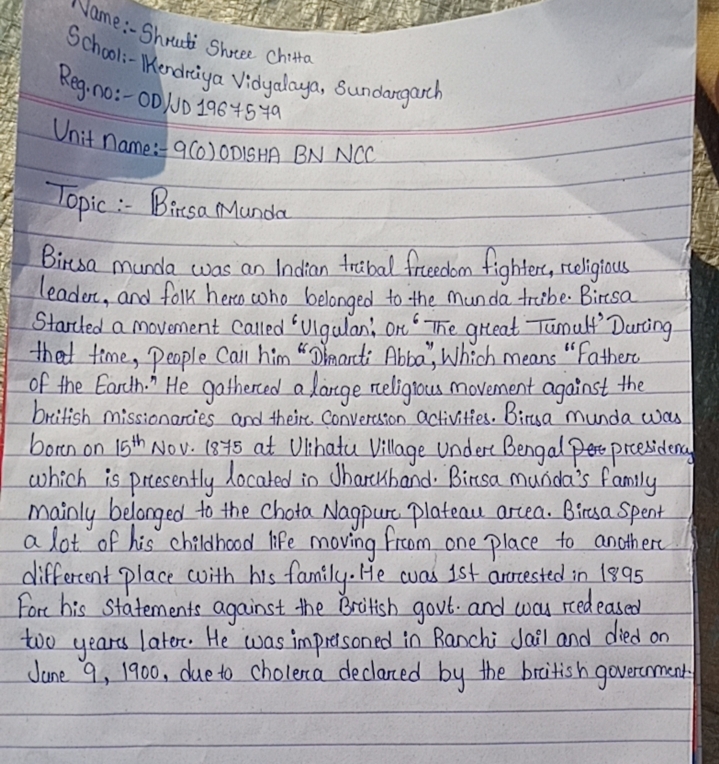 Name:- Shruti Shree Chitta
School:- Kendriya Vidyalaya, Sundargarh
Reg.no:- OD/JD 1967579
Unit name:- 9(O) ODISHA BN NCC
Topic :- Birsa Munda
Birsa munda was an Indian tribal freedom fighter, religious
leader, and folk hero who belonged to the munda tribe. Birsa
Started a movement called 'Ulgulan', or "The great Tumult" During
that time, People Call him "Dharti Abba", Which means "Father
of the Earth." He gathered a large religious movement against the
british missionaries and their conversion activities. Birsa munda was
born on 15th Nov. 1875 at Ulihatu Village under Bengal presidency
which is presently located in Jharkhand. Birsa munda's family
mainly belonged to the Chota Nagpur plateau area. Birsa Spent
a lot of his childhood life moving from one place to another
different place with his family. He was 1st arrested in 1895
For his statements against the British govt. and was redeased
two years later. He was imprisoned in Ranchi Jail and died on
June 9, 1900, due to cholera declared by the british government.